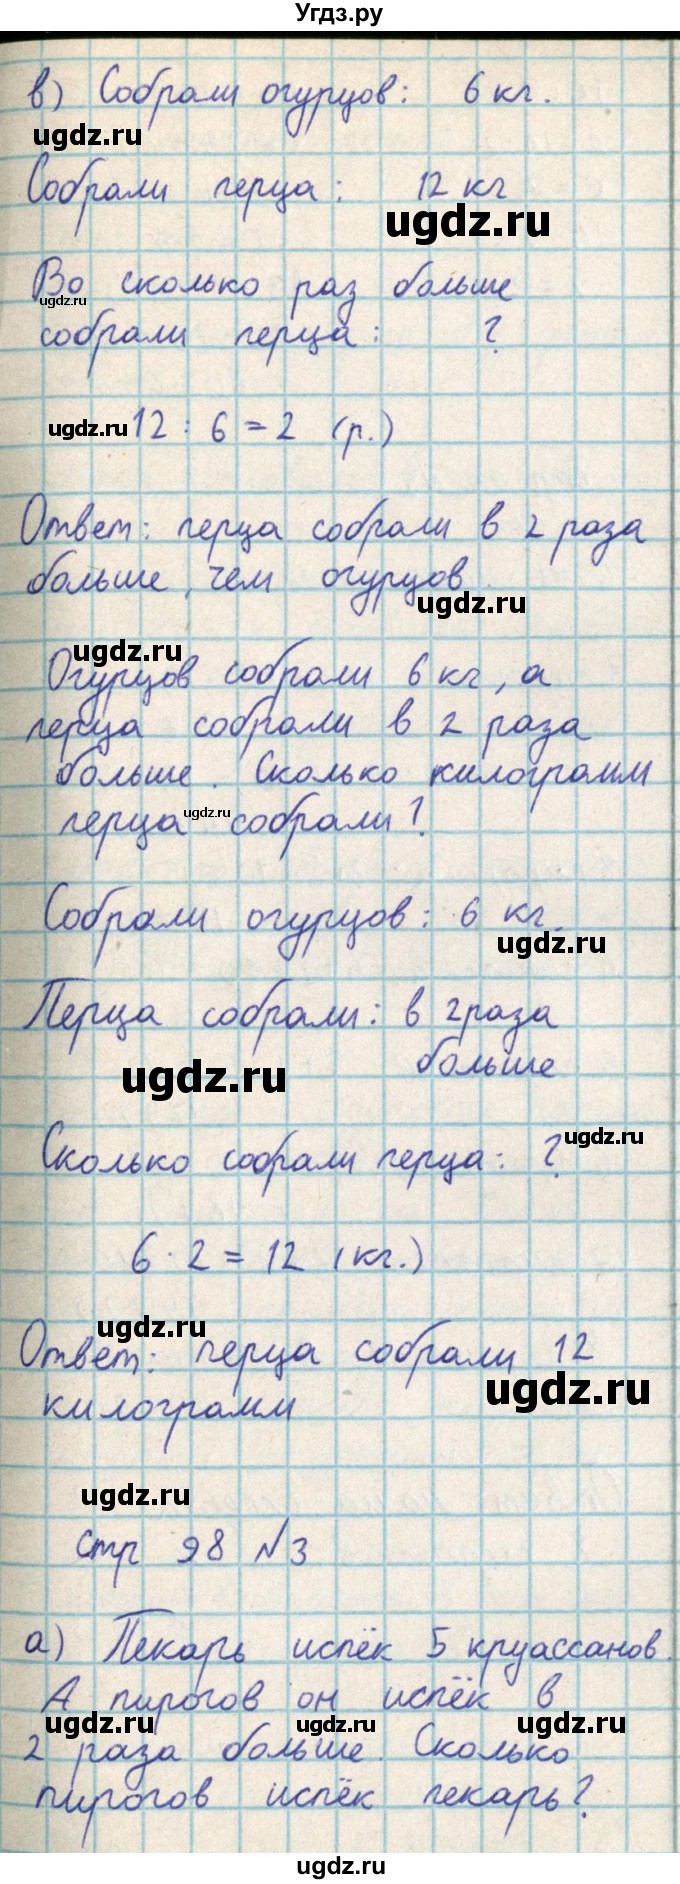 Угдз.ру
в) Собрали огурцов: 6 кг.
ugdz.ru
Собрали перца: 12 кг
ugdz.ru
Во сколько раз больше
ugdz.ru
собрали перца: ?
ugdz.ru 12 : 6 = 2 (р.)
Ответ: перца собрали в 2 раза
больше, чем огурцов.
ugdz.ru
ugdz.ru
Огурцов собрали 6 кг, а
перца собрали в 2 раза
больше. Сколько килограмм
перца собрали?
ugdz.ru
Собрали огурцов: 6 кг.
ugdz.ru
Перца собрали: в 2 раза
больше
ugdz.ru
ugdz.ru
Сколько собрали перца: ?
6 · 2 = 12 (кг.)
ugdz.ru
Ответ: перца собрали 12
ugdz.ru
килограмм
ugdz.ru
стр 98 №3
а) Пекарь испёк 5 круассанов.
А пирогов он испёк в
ugdz.ru ugdz.ru ugdz.ru
2 раза больше. Сколько
пирогов испёк пекарь?
ugdz.ru